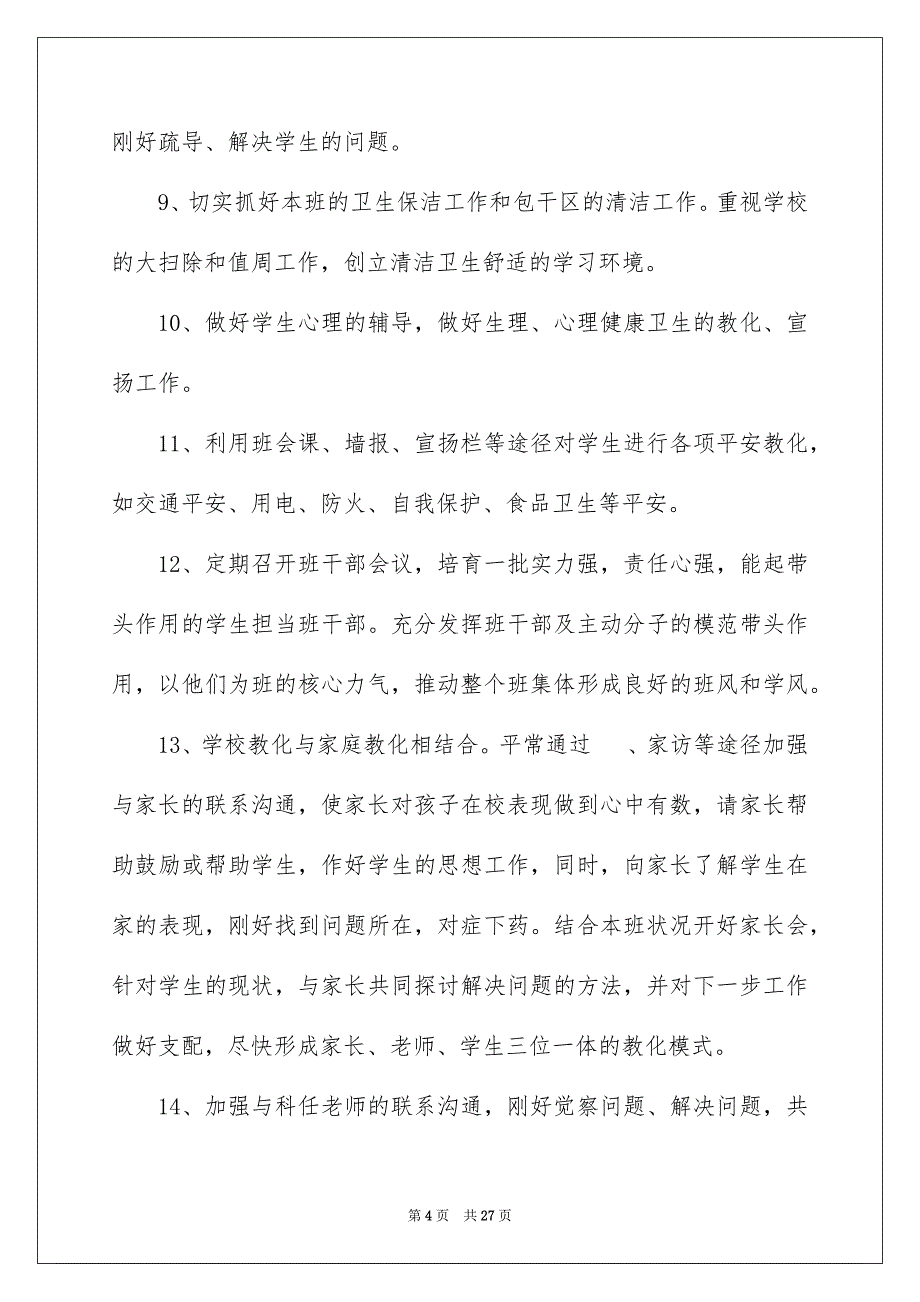 刚好疏导、解决学生的问题。
9、切实抓好本班的卫生保洁工作和包干区的清洁工作。重视学校
的大扫除和值周工作，创立清洁卫生舒适的学习环境。
10、做好学生心理的辅导，做好生理、心理健康卫生的教化、宣
扬工作。
11、利用班会课、墙报、宣扬栏等途径对学生进行各项平安教化，
如交通平安、用电、防火、自我保护、食品卫生等平安。
12、定期召开班干部会议，培育一批实力强，责任心强，能起带
头作用的学生担当班干部。充分发挥班干部及主动分子的模范带头作
用，以他们为班的核心力气，推动整个班集体形成良好的班风和学风。
13、学校教化与家庭教化相结合。平常通过　　、家访等途径加强
与家长的联系沟通，使家长对孩子在校表现做到心中有数，请家长帮
助鼓励或帮助学生，作好学生的思想工作，同时，向家长了解学生在
家的表现，刚好找到问题所在，对症下药。结合本班状况开好家长会，
针对学生的现状，与家长共同探讨解决问题的方法，并对下一步工作
做好支配，尽快形成家长、老师、学生三位一体的教化模式。
14、加强与科任老师的联系沟通，刚好觉察问题、解决问题，共
第 4 页　共 27 页